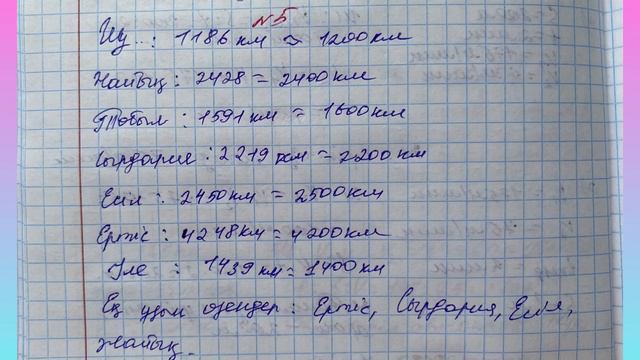 №5
Шу : 1186 км ≈ 1200 км
Жайық : 2428 = 2400 км
Тобыл : 1591 км = 1600 км
Сырдария : 2219 км = 2200 км
Есіл : 2450 км = 2500 км
Ертіс : 4248 км = 4200 км
Іле : 1439 км = 1400 км
Ең ұзын өзендер : Ертіс, Сырдария, Есіл,
Жайық.